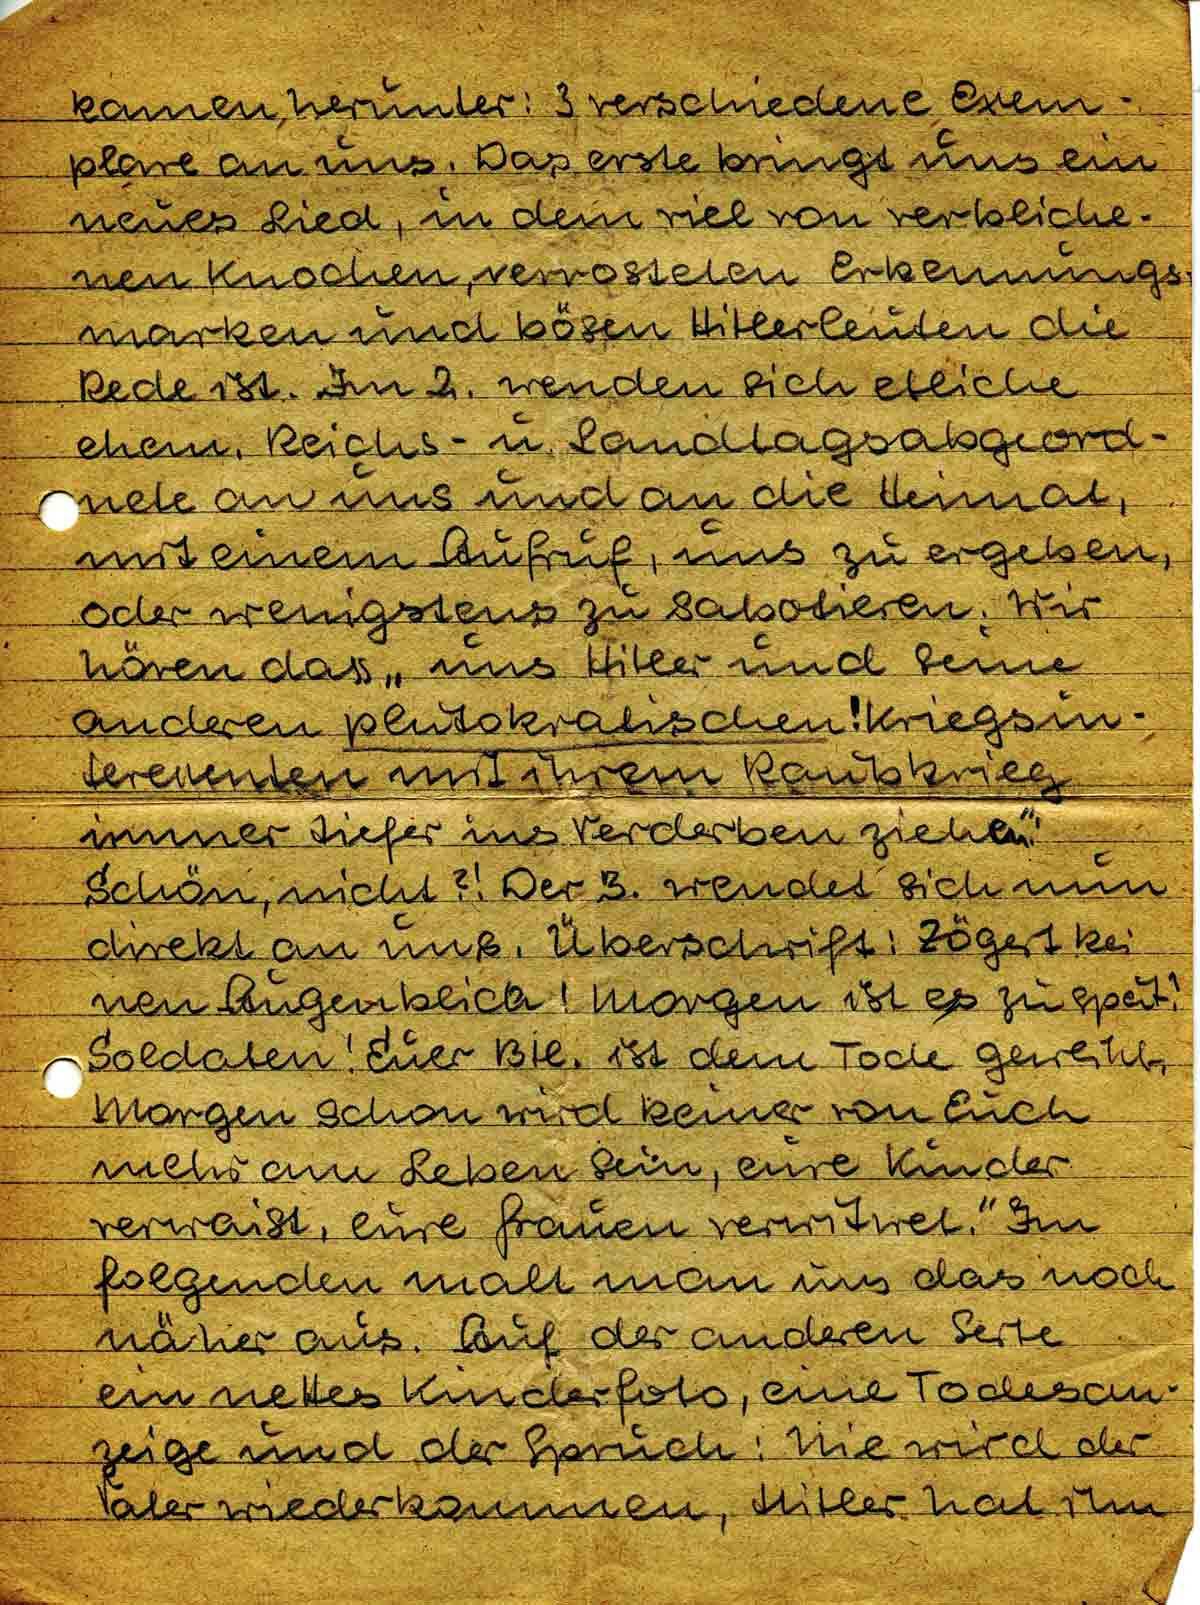 kamen, herunter: 3 verschiedene Exem-
plare an uns. Das erste bringt uns ein
neues Lied, in dem viel von verbliche-
nen Knochen, verrosteten Erkennungs-
marken und bösen Hitlerleuten die
Rede ist. Im 2. wenden sich etliche
ehem. Reichs- u. Landtagsabgeord-
nete an uns und an die Heimat,
mit einem Aufruf, uns zu ergeben,
oder wenigstens zu sabotieren. Wir
hören dass „uns Hitler und seine
anderen plutokratischen! Kriegsin-
teressenten mit ihrem Raubkrieg
immer tiefer ins Verderben ziehen“!
Schön, nicht?! Der 3. wendet sich nun
direkt an uns. Überschrift: Zögert kei
nen Augenblick! Morgen ist es zu spät!
Soldaten! Euer Btl. ist dem Tode geweiht,
Morgen schon wird keiner von Euch
mehr am Leben sein, eure Kinder
verwaist, eure Frauen verwitwet.“ Im
folgenden malt man uns das noch
näher aus. Auf der anderen Seite
ein nettes Kinderfoto, eine Todesan-
zeige und der Spruch: Nie wird der
Vater wiederkommen, Hitler hat ihm